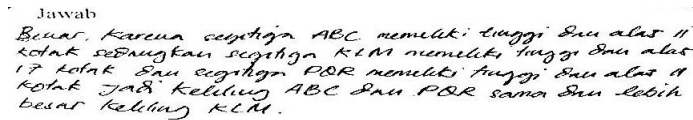 Jawab
Benar, Karena segitiga ABC memeliki tinggi dan alas 11
kotak sedangkan segitiga KLM memeliki tinggi dan alas
17 kotak dan segitiga PQR memeliki tinggi dan alas 11
kotak Jadi Keliling ABC dan PQR sama dan lebih
besar Keliling KLM.